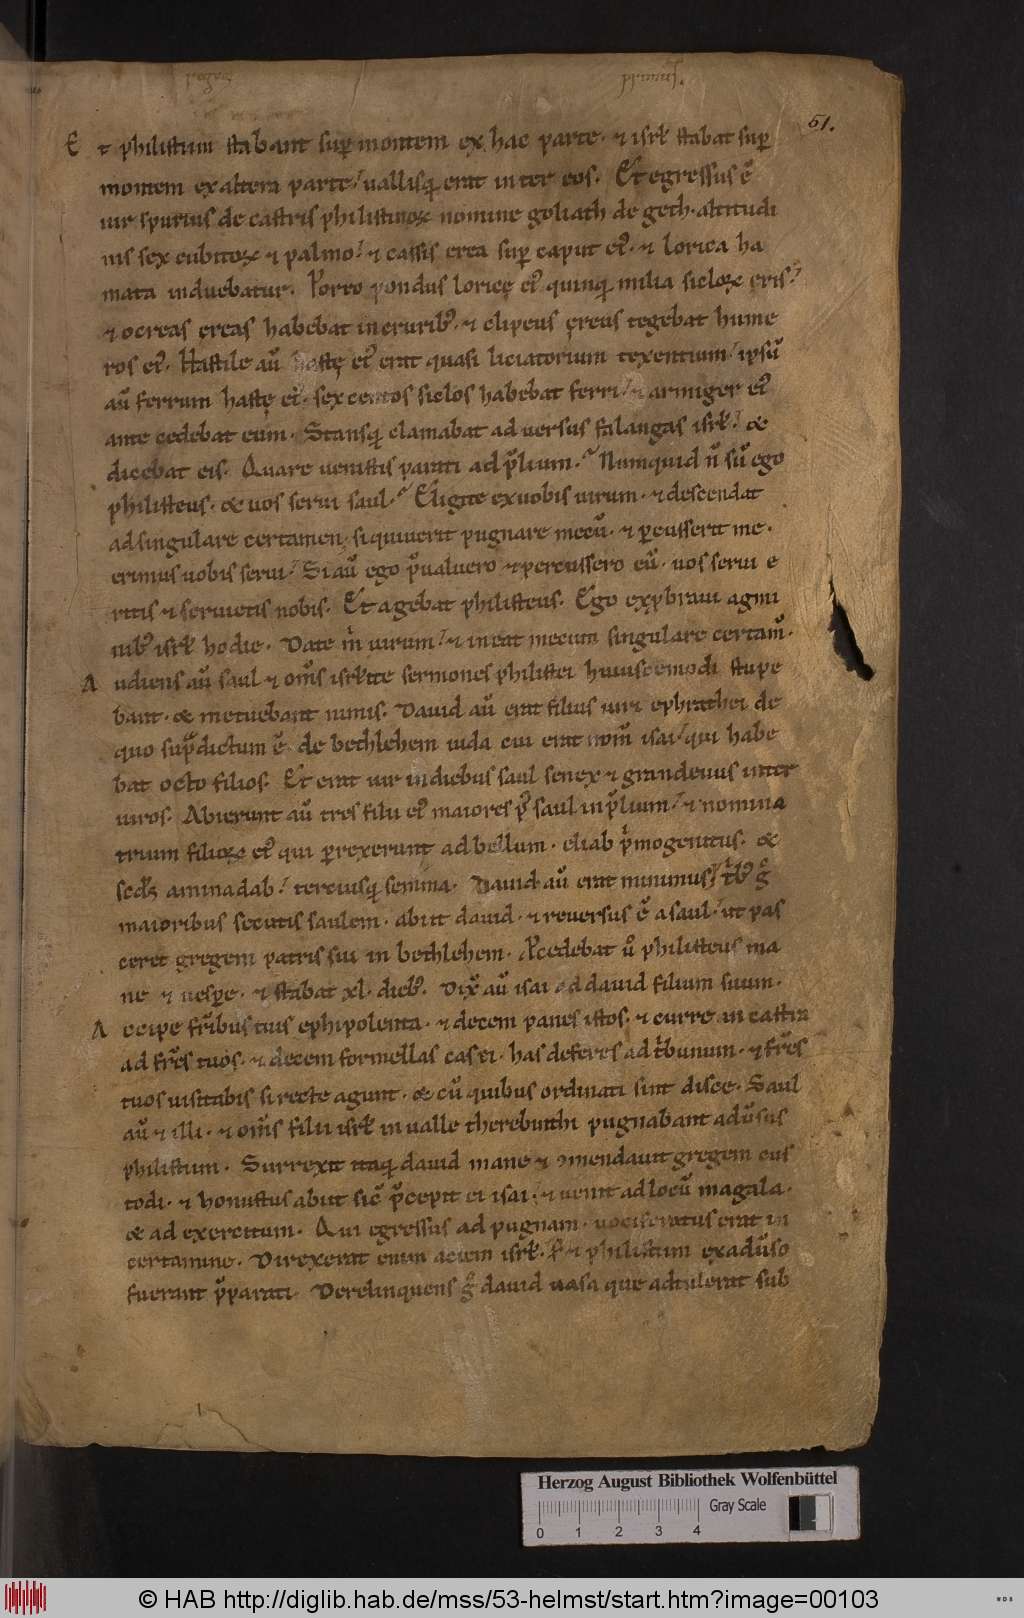 51.
Et philistiim stabant suꝑ montem ex hac parte· ⁊ isrl̄ stabat suꝑ
montem ex altera parte·́ uallisq; erat inter eos. Et egressus ē
uir spurius de castris philistinoꝝ nomine goliath de geth· altitudi
nis sex cubitoꝝ ⁊ palmo·́ ⁊ cassis erea suꝑ caput ei᷒· ⁊ lorica ha
mata induebatur. Porro pondus loricę ei᷒ quinq; milia sicloꝝ ęris·́
⁊ ocreas ęreas habebat in crurib᷒· ⁊ clipeus ęreus tegebat hume
ros ei᷒. Hastile aū hastę ei᷒ erat quasi liciatorium texentium·́ ipsū
aū ferrum hastę ei᷒· sexcentos siclos habebat ferri·́ ⁊ armiger ei᷒
ante cedebat eum. Stansq; clamabat aduersus falangas isrl̄·́ &
dicebat eis. Quare uenistis parati ad p̄lium. Numquid n̄ sū ego
philisteus· & uos serui saul. Eligite ex uobis uirum· ⁊ descendat
ad singulare certamen· si quiuerit pugnare mecū· ⁊ ꝑcusserit me·
erimus uobis serui·́ Si aū ego p̄ualuero ⁊ percussero eū· uos serui e
ritis ⁊ seruietis nobis. Et agebat philisteus. Ego exp̱braui agmi
nib᷒ isrl̄ hodie. Date m̄ uirum·́ ⁊ ineat mecum singulare certam̄.
Audiens aū saul ⁊ om̄s isrl̄ite sermones philistei huiuscemodi stupe
bant· & metuebant nimis. Dauid aū erat filius uiri ephrathei de
quo sup̄dictum ē de bethlehem iuda cui erat nom̄ isai·́ qui habe
bat octo filios. Et erat uir in diebus saul senex ⁊ grandeuus inter
uiros. Abierunt aū tres filii ei᷒ maiores p᷒ saul in p̄lium·́ ⁊ nomina
trium filioꝝ ei᷒ qui perrexerunt ad bellum· eliab p̍mogenitus· &
scd̄s aminadab·́ terciusq; semma. Dauid aū erat minimus·́ t̍b᷒ gͦ
maioribus secutis saulem· abiit dauid· ⁊ reuersus ē a saul·́ ut pas
ceret gregem patris sui in bethlehem. P̄cedebat uͦ philisteus ma
ne ⁊ uesꝑe· ⁊ stabat xl· dieb᷒. Dix̄ aū isai ad dauid filium suum.
Accipe fr̄ibus tuis ephi polenta· ⁊ decem panes istos· ⁊ curre in castra
ad fr̄es tuos· ⁊ decem formellas casei· has deferes ad t̍bunum· ⁊ fr̄es
tuos uisitabis si recte agunt· & cū quibus ordinati sint disce. Saul
aū ⁊ illi· ⁊ om̄s filii isrl̄ in ualle therebinthi pugnabant adūsus
philistiim. Surrexit itaq; dauid mane ⁊ ꝯmendauit gregem cus
todi· ⁊ honustus abiit sic̄ p̄cepit ei isai·́ ⁊ uenit ad locū magala·
& ad exercitum. Qui egressus ad pugnam· uociferatus erat in
certamine. Direxerat enim aciem isrl̄· s; ⁊ philistiim exadūso
fuerant p̄parati. Derelinquens gͦ dauid uasa que adtulerat sub
Herzog August Bibliothek Wolfenbüttel
Gray Scale
0 1 2 3 4
© HAB http://diglib.hab.de/mss/53-helmst/start.htm?image=00103